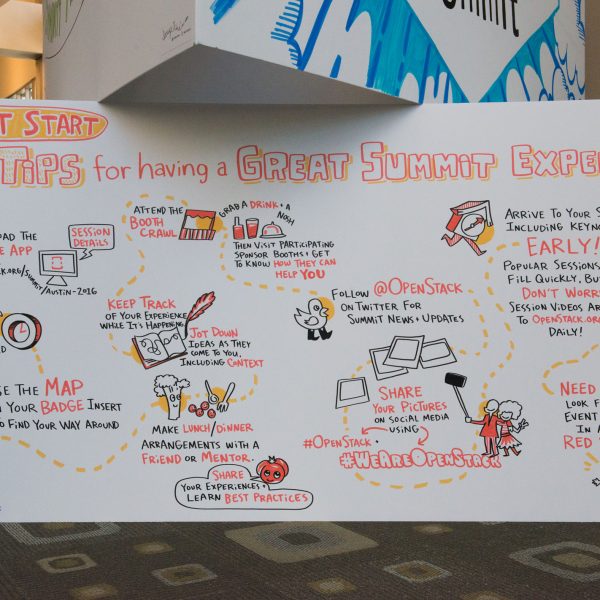 Summit
T START
TIPS for having a GREAT SUMMIT EXPE
OAD THE
E APP
CK.ORG/SUMMIT/AUSTIN-2016
SESSION
DETAILS
SE THE MAP
N YOUR BADGE INSERT
TO FIND YOUR WAY AROUND
ATTEND THE
BOOTH
CRAWL
GRAB A DRINK + A
NOSH
THEN VISIT PARTICIPATING
SPONSOR BOOTHS + GET
TO KNOW HOW THEY CAN
HELP YOU
KEEP TRACK
OF YOUR EXPERIENCE
WHILE IT'S HAPPENING
JOT DOWN
IDEAS AS THEY
COME TO YOU,
INCLUDING CONTEXT
MAKE LUNCH/DINNER
ARRANGEMENTS WITH A
FRIEND OR MENTOR.
SHARE
YOUR EXPERIENCES +
LEARN BEST PRACTICES
FOLLOW @OPENSTACK
ON TWITTER FOR
SUMMIT NEWS + UPDATES
SHARE
YOUR PICTURES
ON SOCIAL MEDIA
USING
#OPENSTACK +
#WEAREOPENSTACK
ARRIVE TO YOUR S
INCLUDING KEYNO
EARLY!
POPULAR SESSIONS
FILL QUICKLY, BU
DON'T WORR
SESSION VIDEOS AR
TO OPENSTACK.OR
DAILY!
NEED
LOOK F
EVENT
IN A
RED